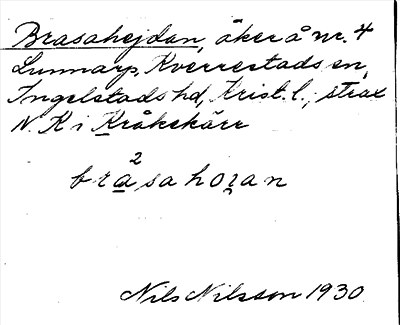 Brasahejdan, åker å nr. 4
Lunnarp, Kverrestads sn,
Ingelstads hd, Krist. l.; strax
N. K i Kråkekärr
bra²sahoʐan
Nils Nilsson 1930